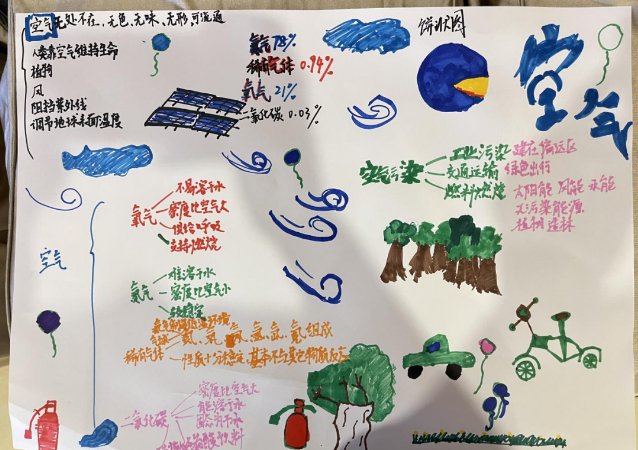 空气无处不在、无色、无味、无形、可流通
人要靠空气维持生命
植物
风
阻挡紫外线
调节地球表面温度
氮气 78%
稀有气体 0.94%
氧气 21%
二氧化碳 0.03%
饼状图
空气
空气污染
工业污染 建在偏远区
交通运输 绿色出行
燃料燃烧 太阳能 风能 水能
无污染能源
植树造林
空气
氧气
不易溶于水
密度比空气大
供给呼吸
支持燃烧
氮气
难溶于水
密度比空气小
较稳定
稀有气体
性质十分稳定,基本不与其它物质反应
二氧化碳
密度比空气大
能溶于水